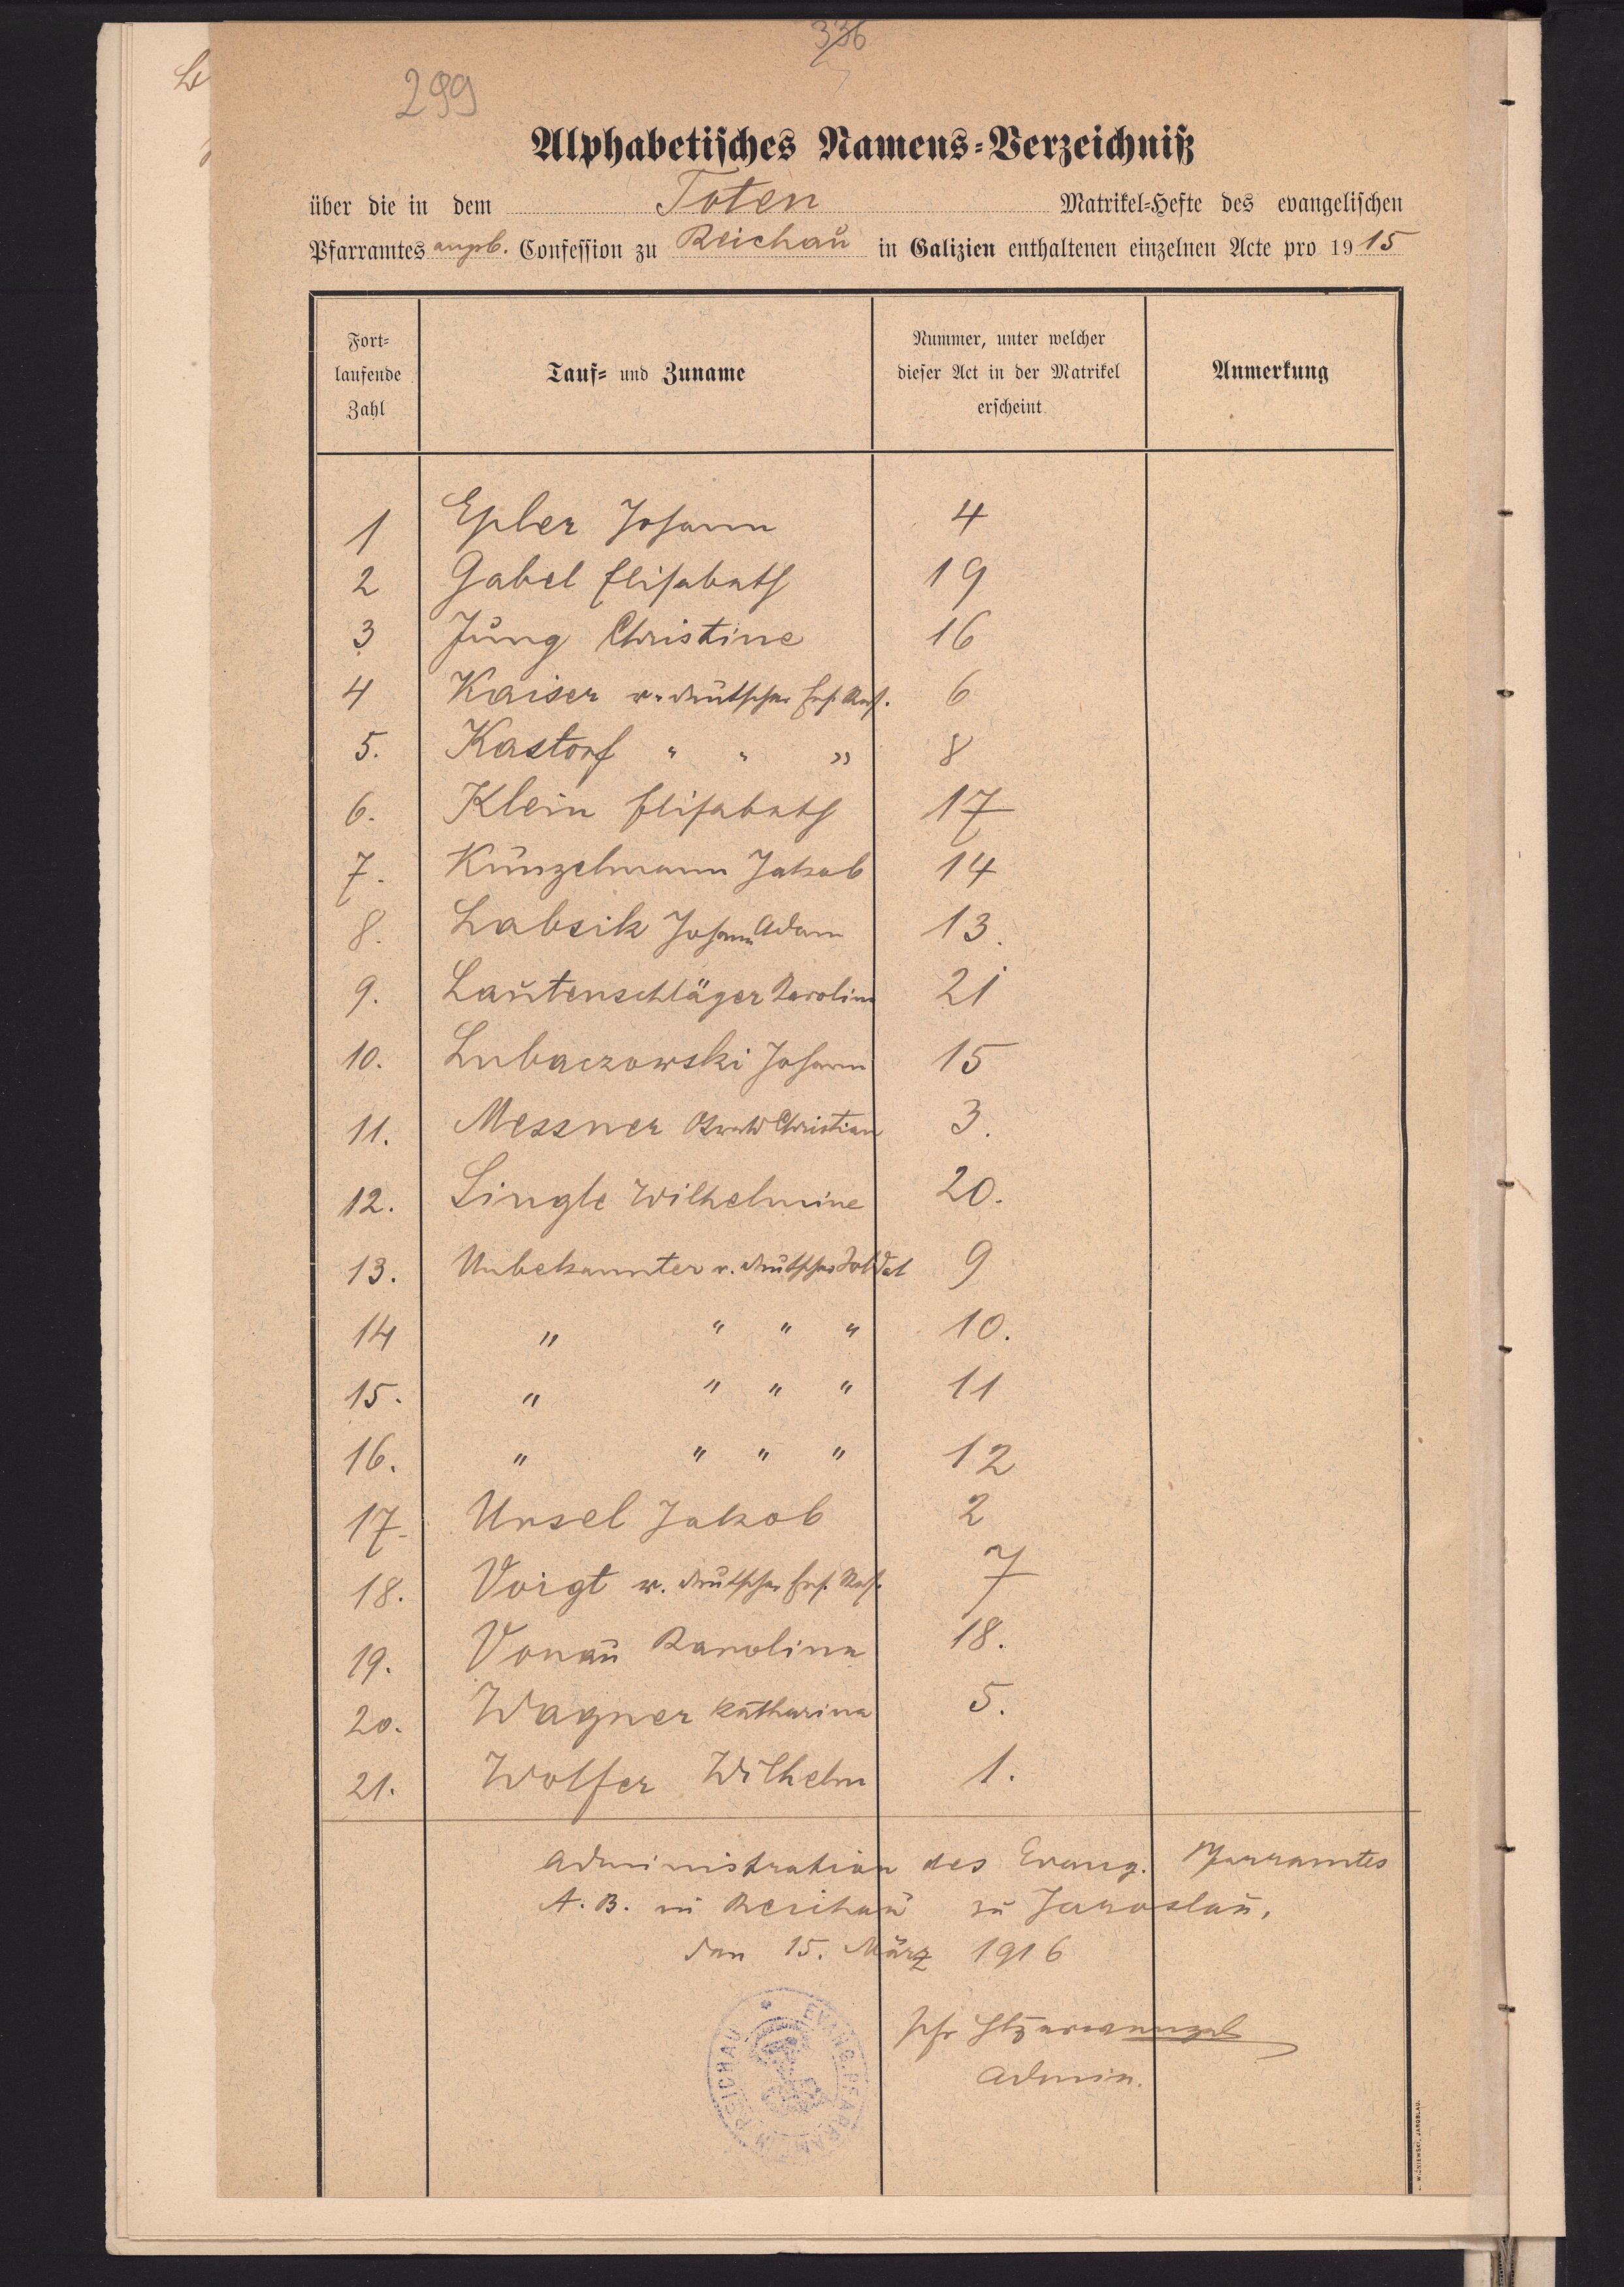 336
299
Alphabetisches Namens-Verzeichniß
über die in dem Toten Matrikel-Hefte des evangelischen
Pfarramtes augsb. Confession zu Reichau in Galizien enthaltenen einzelnen Acte pro 1915
Fort-
laufende
Zahl
Tauf- und Zuname
Nummer, unter welcher
dieser Act in der Matrikel
erscheint
Anmerkung
1 Epler Johann 4
2 Gabel Elisabeth 19
3 Jung Christine 16
4 Kaiser r. deutscher 6
5. Kastorf " " " 8
6. Klein Elisabeth 17
7. Künzelmann Jakob 14
8. Labsik Johann Adam 13.
9. Lautenschläger Karolina 21
10. Lubaczowski Johann 15
11. Messner Oswald Christian 3.
12. Single Wilhelmine 20.
13. Unbekannter r. deutscher Soldat 9
14 " " " " 10.
15. " " " " 11
16. " " " " 12
17. Ursel Jakob 2
18. Voigt r. deutscher 7
19. Vonau Karolina 18.
20. Wagner Katharina 5.
21. Wolfer Wilhelm 1.
Administration des Evang. Pfarramtes
A. B. in Reichau zu Jaroslau,
den 15. März 1916
Admin.
EVANG. PFARRAMT REICHAU
WIŚNIEWSKI, JAROSLAU.